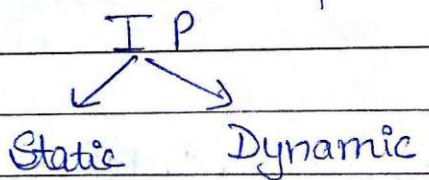 IP
Static Dynamic